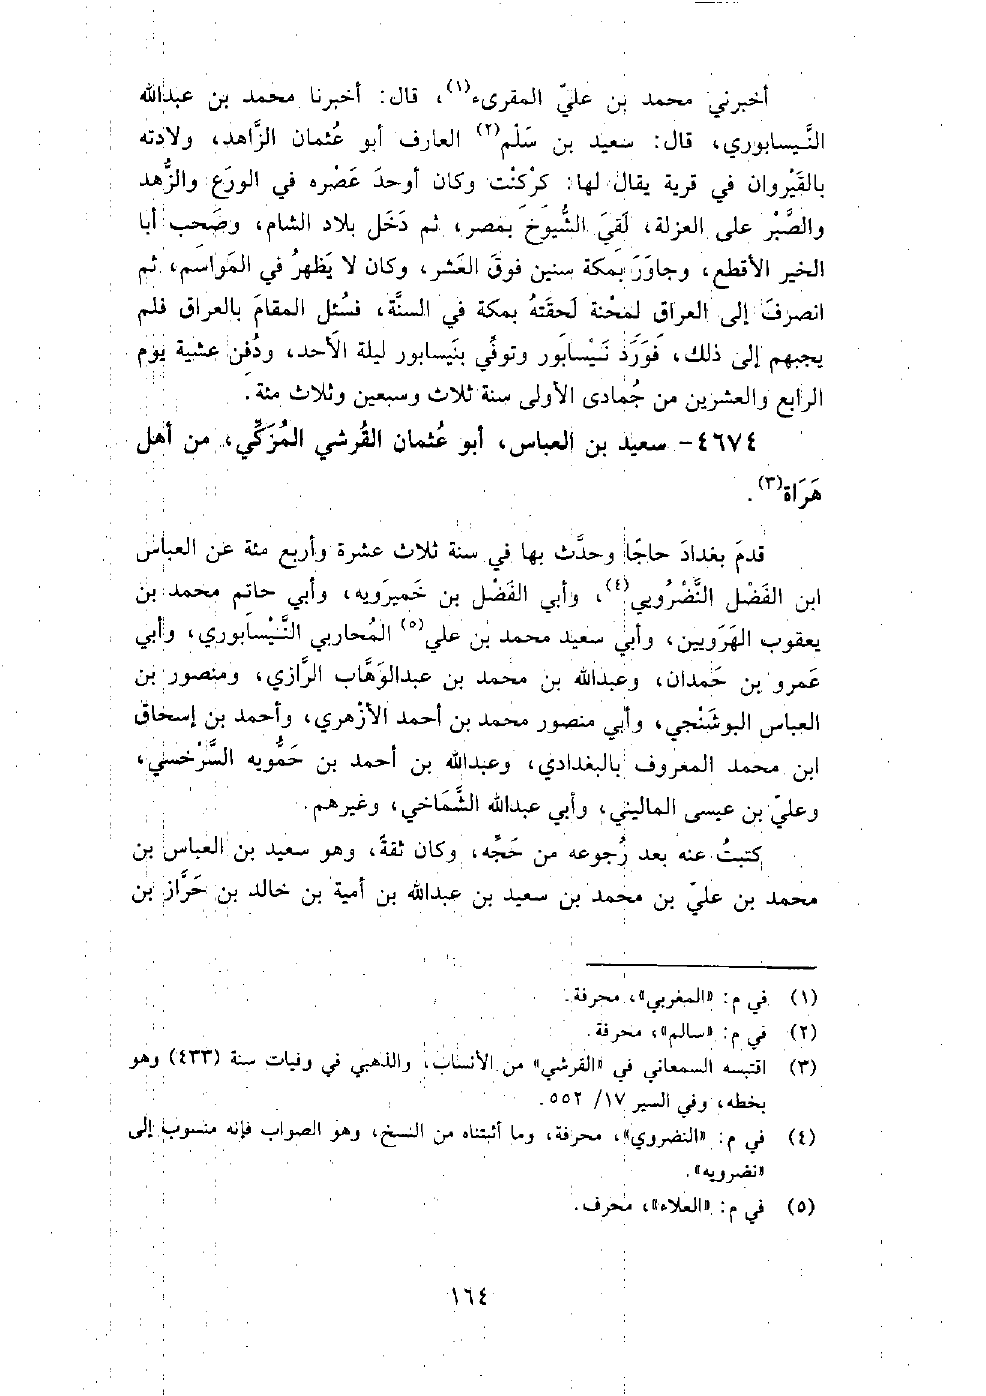 أخبرني محمد بن عليّ المقرىء(١)، قال: أخبرنا محمد بن عبدالله
النَّيسابوري، قال: سعيد بن سَلْم(٢) العارف أبو عُثمان الزَّاهد، ولادته
بالقَيْروان في قرية يقال لها: كرْكنْت وكان أوحدَ عَصْره في الورَع والزُّهد
والصَّبْر على العزلة، لَقِيَ الشُّيوخ بمصر، ثم دَخَل بلاد الشام، وصَحب أبا
الخير الأقطع، وجاوَرَ بمكة سنين فوقَ العَشر، وكان لا يَظهرُ في المَواسم، ثم
انصرفَ إلى العراق لمحْنة لَحقَتهُ بمكة في السنَّة، فسُئل المقامَ بالعراق فلم
يجبهم إلى ذلك، فوَرَدَ نَيْسابور وتوفِّي بنَيسابور ليلة الأحد، ودُفن عشية يوم
الرابع والعشرين من جُمادى الأولى سنة ثلاث وسبعين وثلاث مئة.
٤٦٧٤- سعيد بن العباس، أبو عُثمان القُرشي المُزَكِّي، من أهل
هَرَاة(٣).
قدمَ بغدادَ حاجًا وحدَّث بها في سنة ثلاث عشرة وأربع مئة عن العباس
ابن الفَضْل النَّضْرُويي(٤)، وأبي الفَضْل بن خَميرويه، وأبي حاتم محمد بن
يعقوب الهَرَويين، وأبي سعيد محمد بن علي(٥) المُحاربي النَّيْسابوري، وأبي
عَمرو بن حَمدان، وعبدالله بن محمد بن عبدالوَهَّاب الرَّازي، ومنصور بن
العباس البوشَنْجي، وأبي منصور محمد بن أحمد الأزْهري، وأحمد بن إسحاق
ابن محمد المعروف بالبغدادي، وعبدالله بن أحمد بن حَمُّويه السَّرْخسي،
وعليّ بن عيسى الماليني، وأبي عبدالله الشَّمَاخي، وغيرهم.
كتبتُ عنه بعد رُجوعه من حَجِّه، وكان ثقةً، وهو سعيد بن العباس بن
محمد بن عليّ بن محمد بن سعيد بن عبدالله بن أمية بن خالد بن حَرَّاز بن
(١) في م: «المغربي»، محرفة.
(٢) في م: «سالم»، محرفة.
(٣) اقتبسه السمعاني في «القرشي» من الأنساب، والذهبي في وفيات سنة (٤٣٣) وهو
بخطه، وفي السير ١٧/ ٥٥٢.
(٤) في م: «النضروي»، محرفة، وما أثبتناه من النسخ، وهو الصواب فإنه منسوب إلى
«نضرويه».
(٥) في م: «العلاء»، محرف.
١٦٤